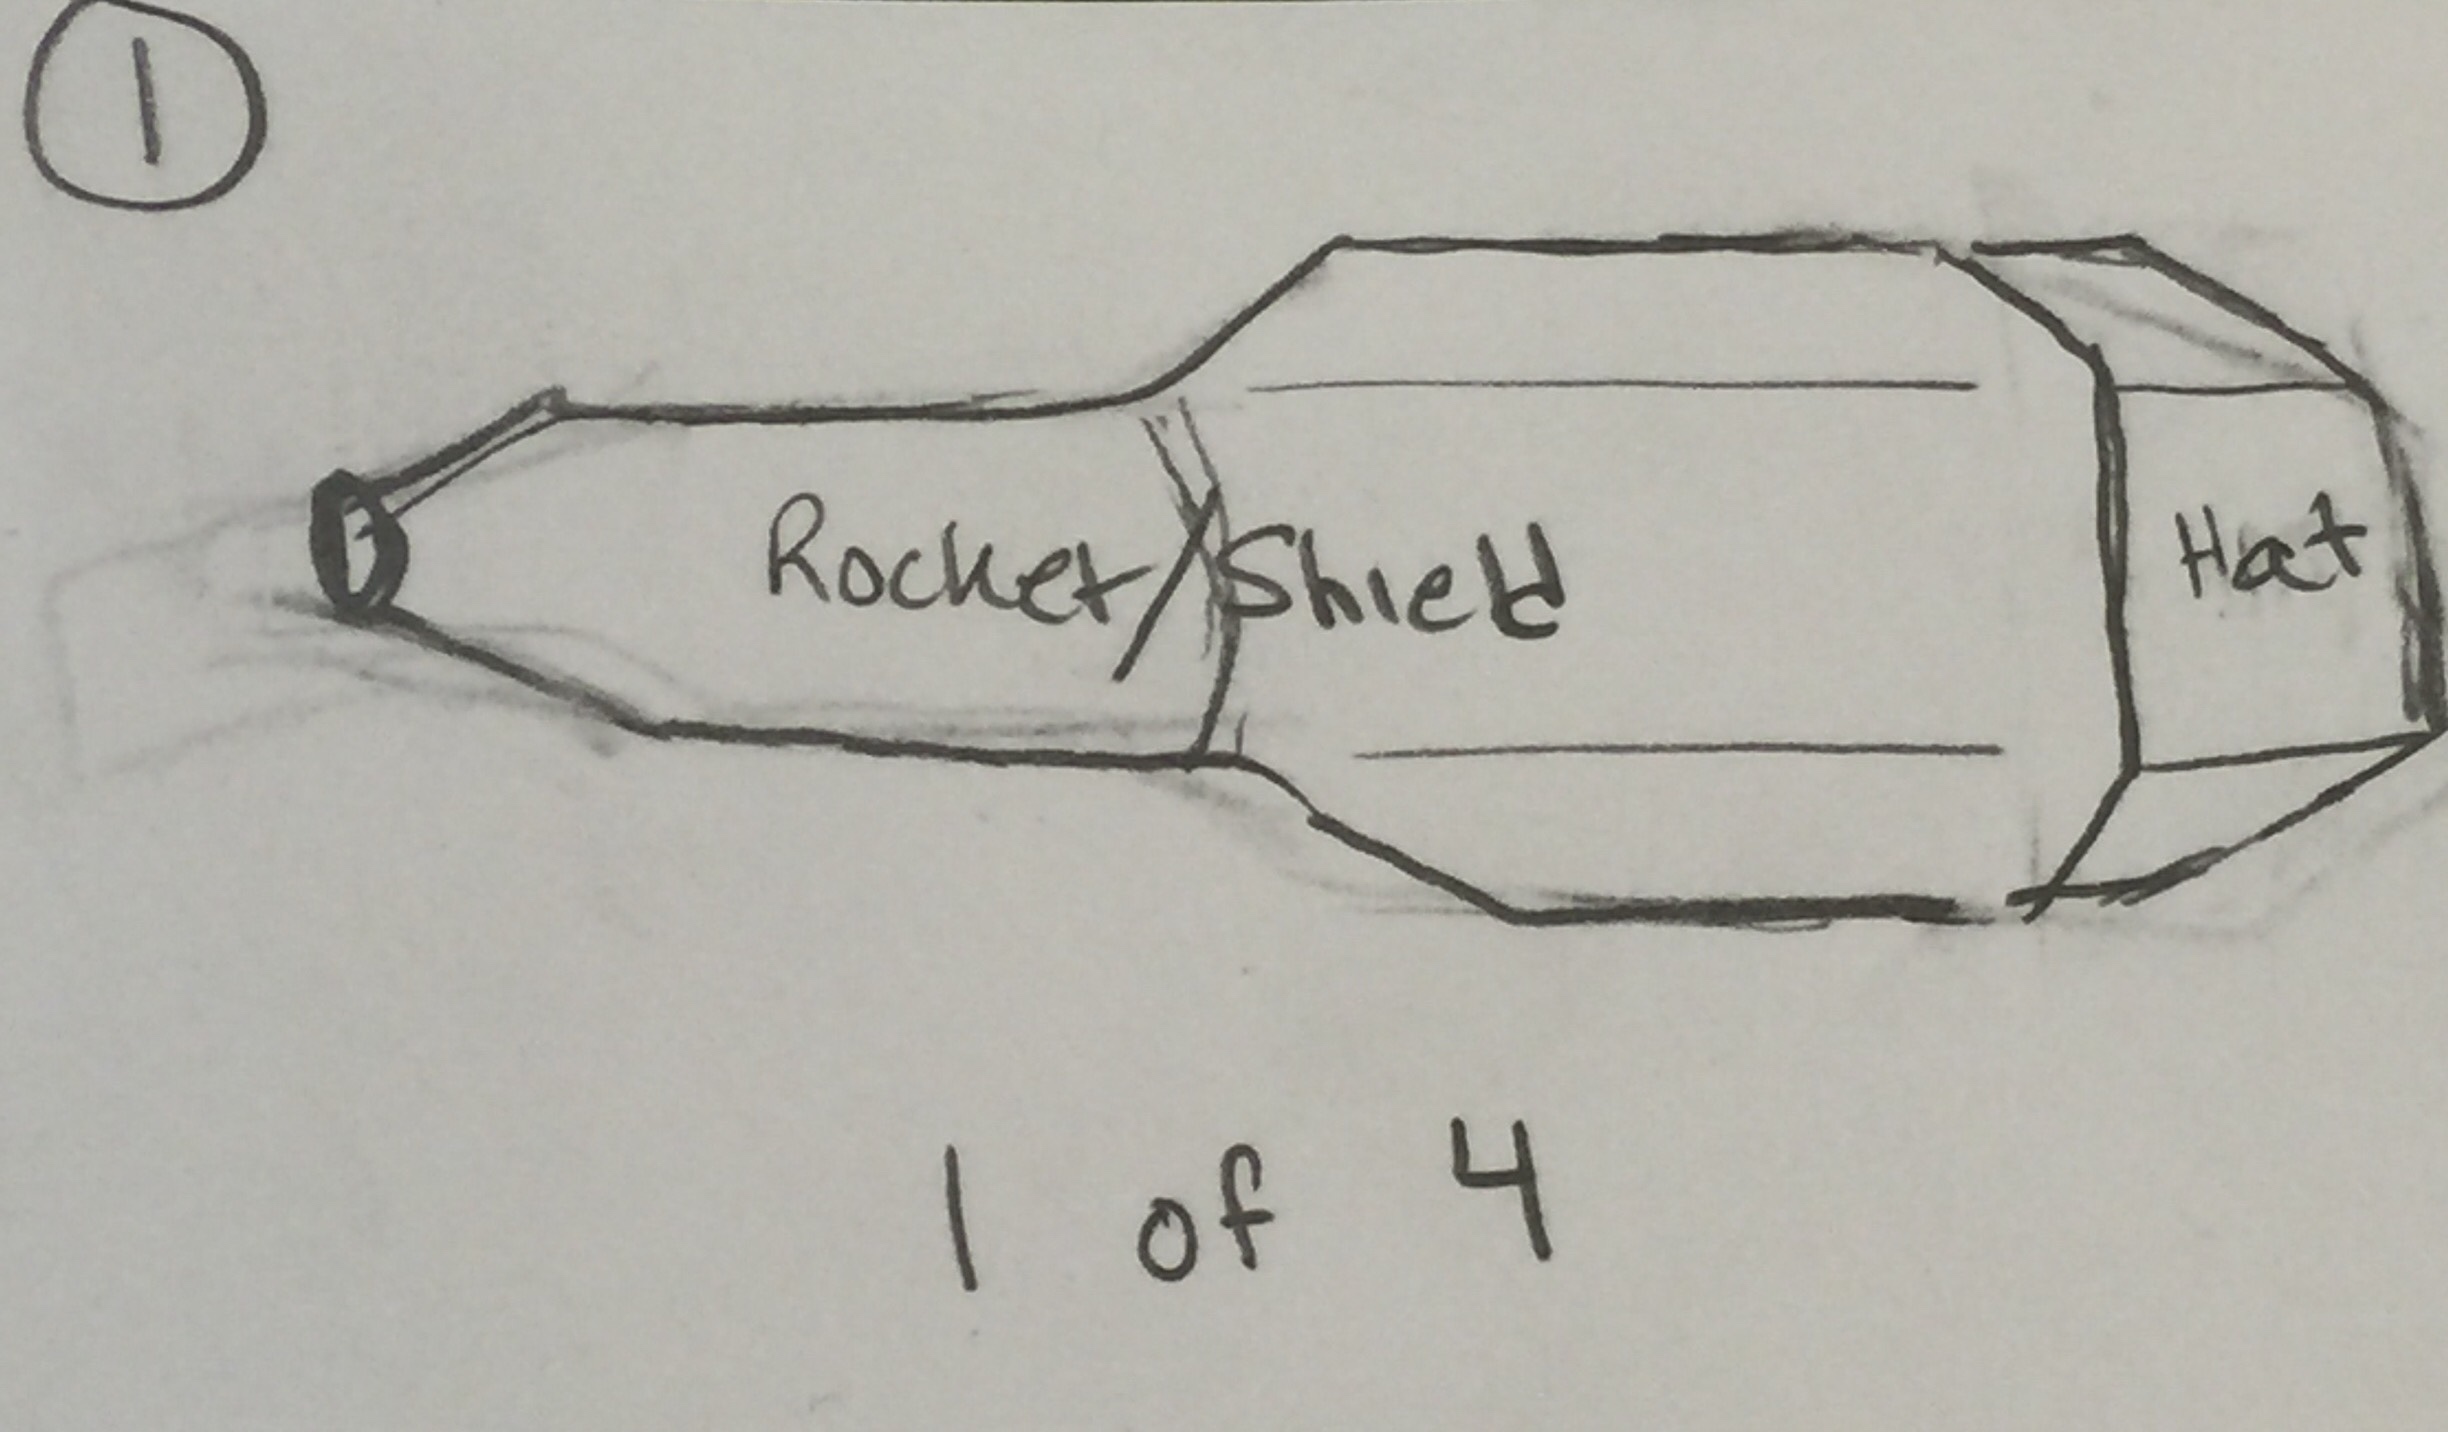 1
Rocket/Shield
Hat
1 of 4